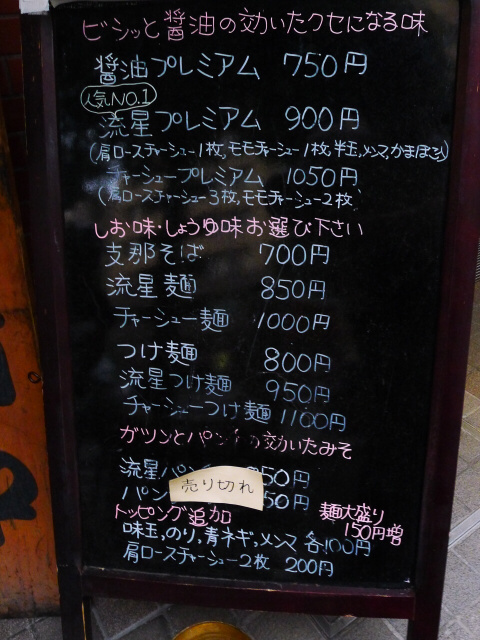 ビシッと醤油の効いたクセになる味
醤油プレミアム 750円
人気NO.1
流星プレミアム 900円
(肩ロースチャーシュー1枚,モモチャーシュー1枚,半玉,メンマ,かまぼこ)
チャーシュープレミアム 1050円
(肩ロースチャーシュー3枚,モモチャーシュー2枚)
しお味・しょうゆ味お選び下さい
支那そば 700円
流星麺 850円
チャーシュー麺 1000円
つけ麺 800円
流星つけ麺 950円
チャーシューつけ麺 1100円
ガツンとパンチの効いたみそ
流星パン 50円
パン 50円
売り切れ
トッピング追加
麺大盛り
150円増
味玉,のり,青ネギ,メンマ 各100円
肩ロースチャーシュー2枚 200円